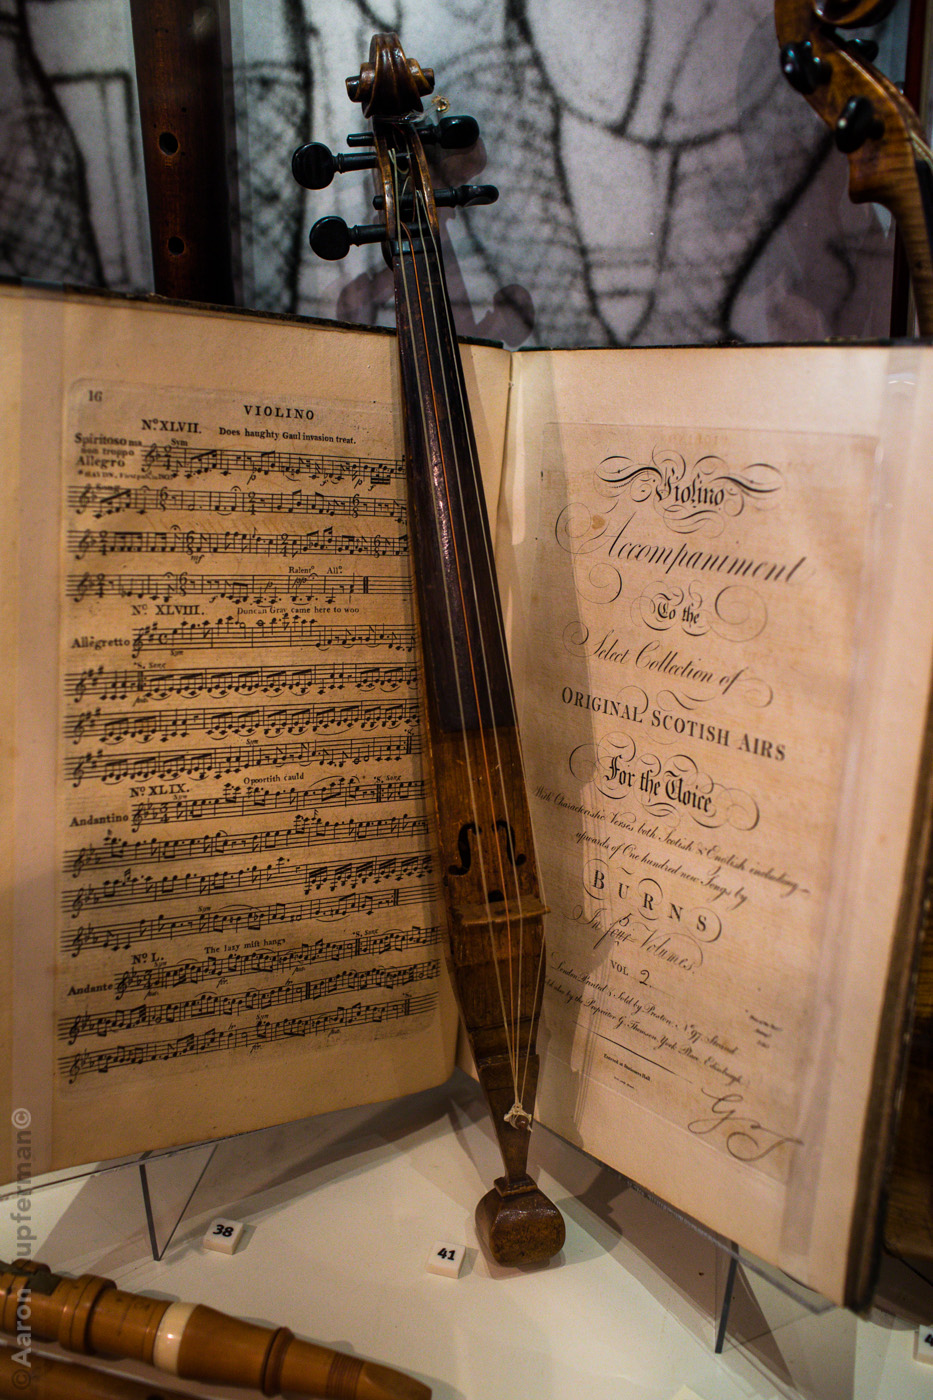 16
VIOLINO
No. XLVII.
Does haughty Gaul invasion treat.
Spiritoso ma
non troppo
Allegro
Sym
HAYDN.
p
f
mf
Ralento
Allo
pp
No. XLVIII.
Duncan Gray came here to woo
Allegretto
Sym
S. Song
Sym
No. XLIX.
Opoortith cauld
Andantino
Sym
S. Song
Sym
No. L.
The lazy mist hangs
Andante
S. Song
Sym
Violino
Accompaniment
To the
Select Collection of
ORIGINAL SCOTISH AIRS
For the Voice
With Characteristic Verses both Scotish & English including
upwards of One hundred new Songs by
BURNS
5
In four Volumes.
VOL 2
London Printed & Sold by Preston, No 97 Strand
by the Proprietor G. Thomson York Place Edinburgh
GT
38
41
© Aaron
upferman©